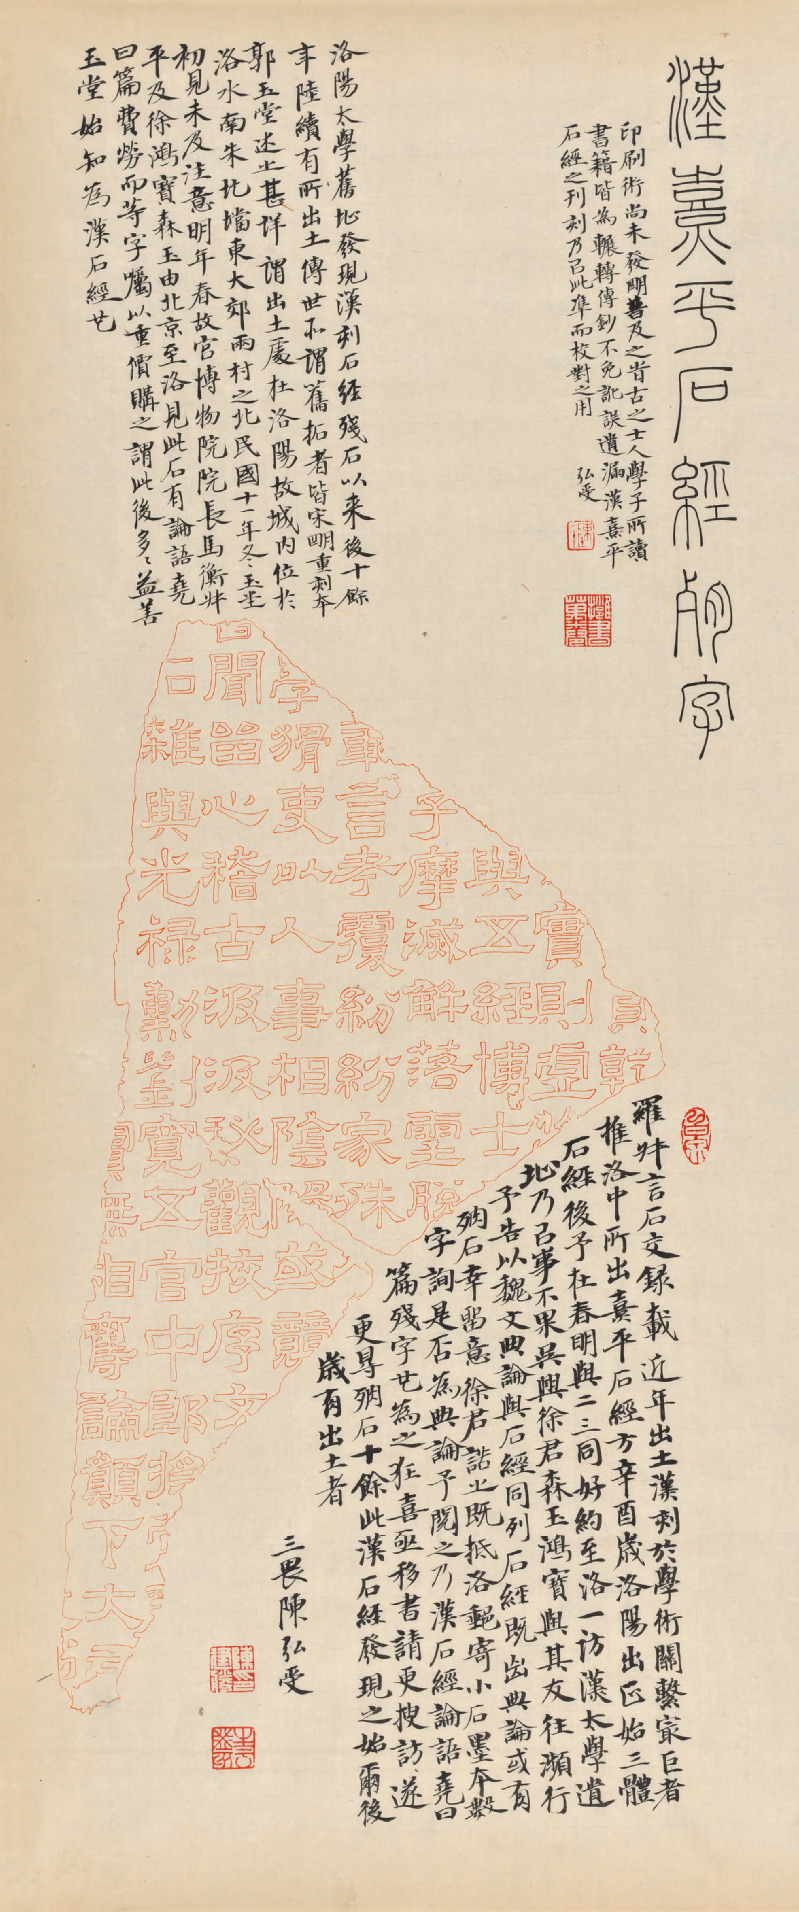 漢熹平石經殘字
印刷術尚未發明普及之前古之士人學子所讀
書籍皆為輾轉傳鈔不免訛誤遺漏漢熹平
石經之刊刻乃以此準而校對之用
弘受
洛陽太學舊址發現漢刻石經殘石以來後十餘
年陸續有所出土傳世所謂舊拓者皆宋明重刻本
郭玉堂述之甚詳謂出土處在洛陽故城內位於
洛水南朱圪壋東大郊兩村之北民國十一年冬玉堂
初見未及注意明年春故宮博物院院長馬衡叔
平及徐鴻寶森玉由北京至洛見此石有論語堯
曰篇費勞而等字囑以重價購之謂此後多多益善
玉堂始知為漢石經也
貞乾
實則虛
與五經博士
子摩滅解落聖勝
章言考覆紛紛家殊
學猾吏以人事相陰陽或競
曰聞留心稽古汲汲秘觀按序文
石雜與光祿勳劉寬五官中郎將
無相奪論顛下大
羅叔言石交錄載近年出土漢刻於學術關繫最巨者
推洛中所出熹平石經方辛酉歲洛陽出正始三體
石經後予在春明與二三同好約至洛一訪漢太學遺
址乃以事不果吳興徐君森玉鴻寶與其友往瀕行
予告以魏文典論與石經同列石經既出典論或有
殘石幸留意徐君諾之既抵洛郵寄小石墨本數
字詢是否為典論予閱之乃漢石經論語堯曰
篇殘字也為之狂喜亟移書請更搜訪遂
更得殘石十餘此漢石經發現之始爾後
歲有出土者
三畏陳弘受